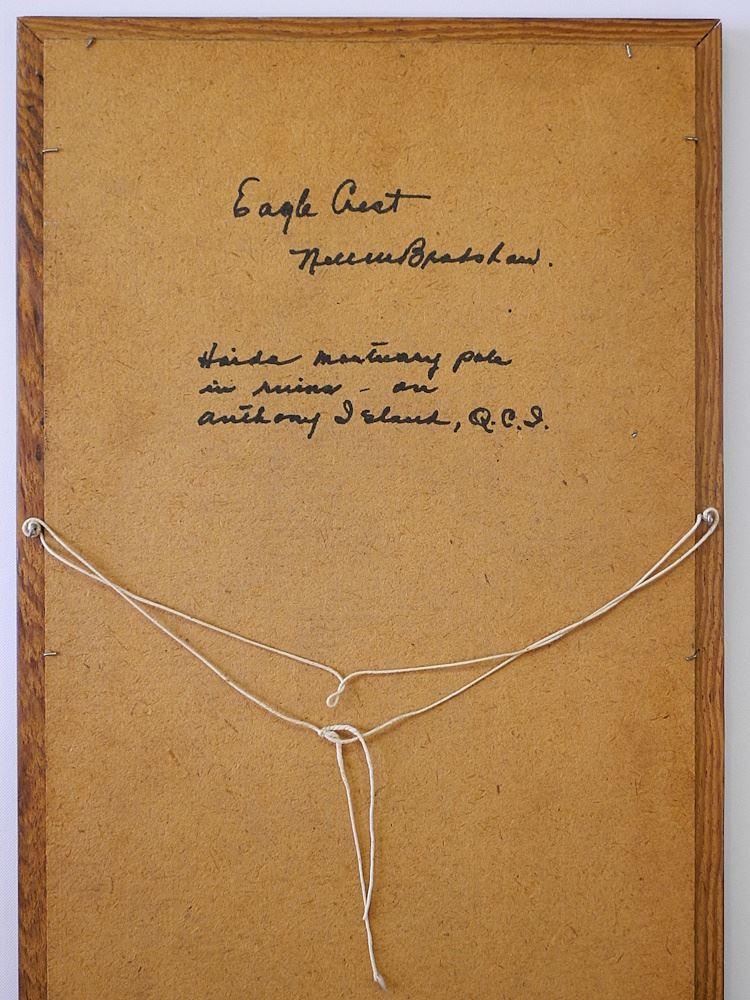 Eagle Crest
Nell M Bradshaw.
Haida mortuary pole
in ruins - on
Anthony Island, Q.C.I.